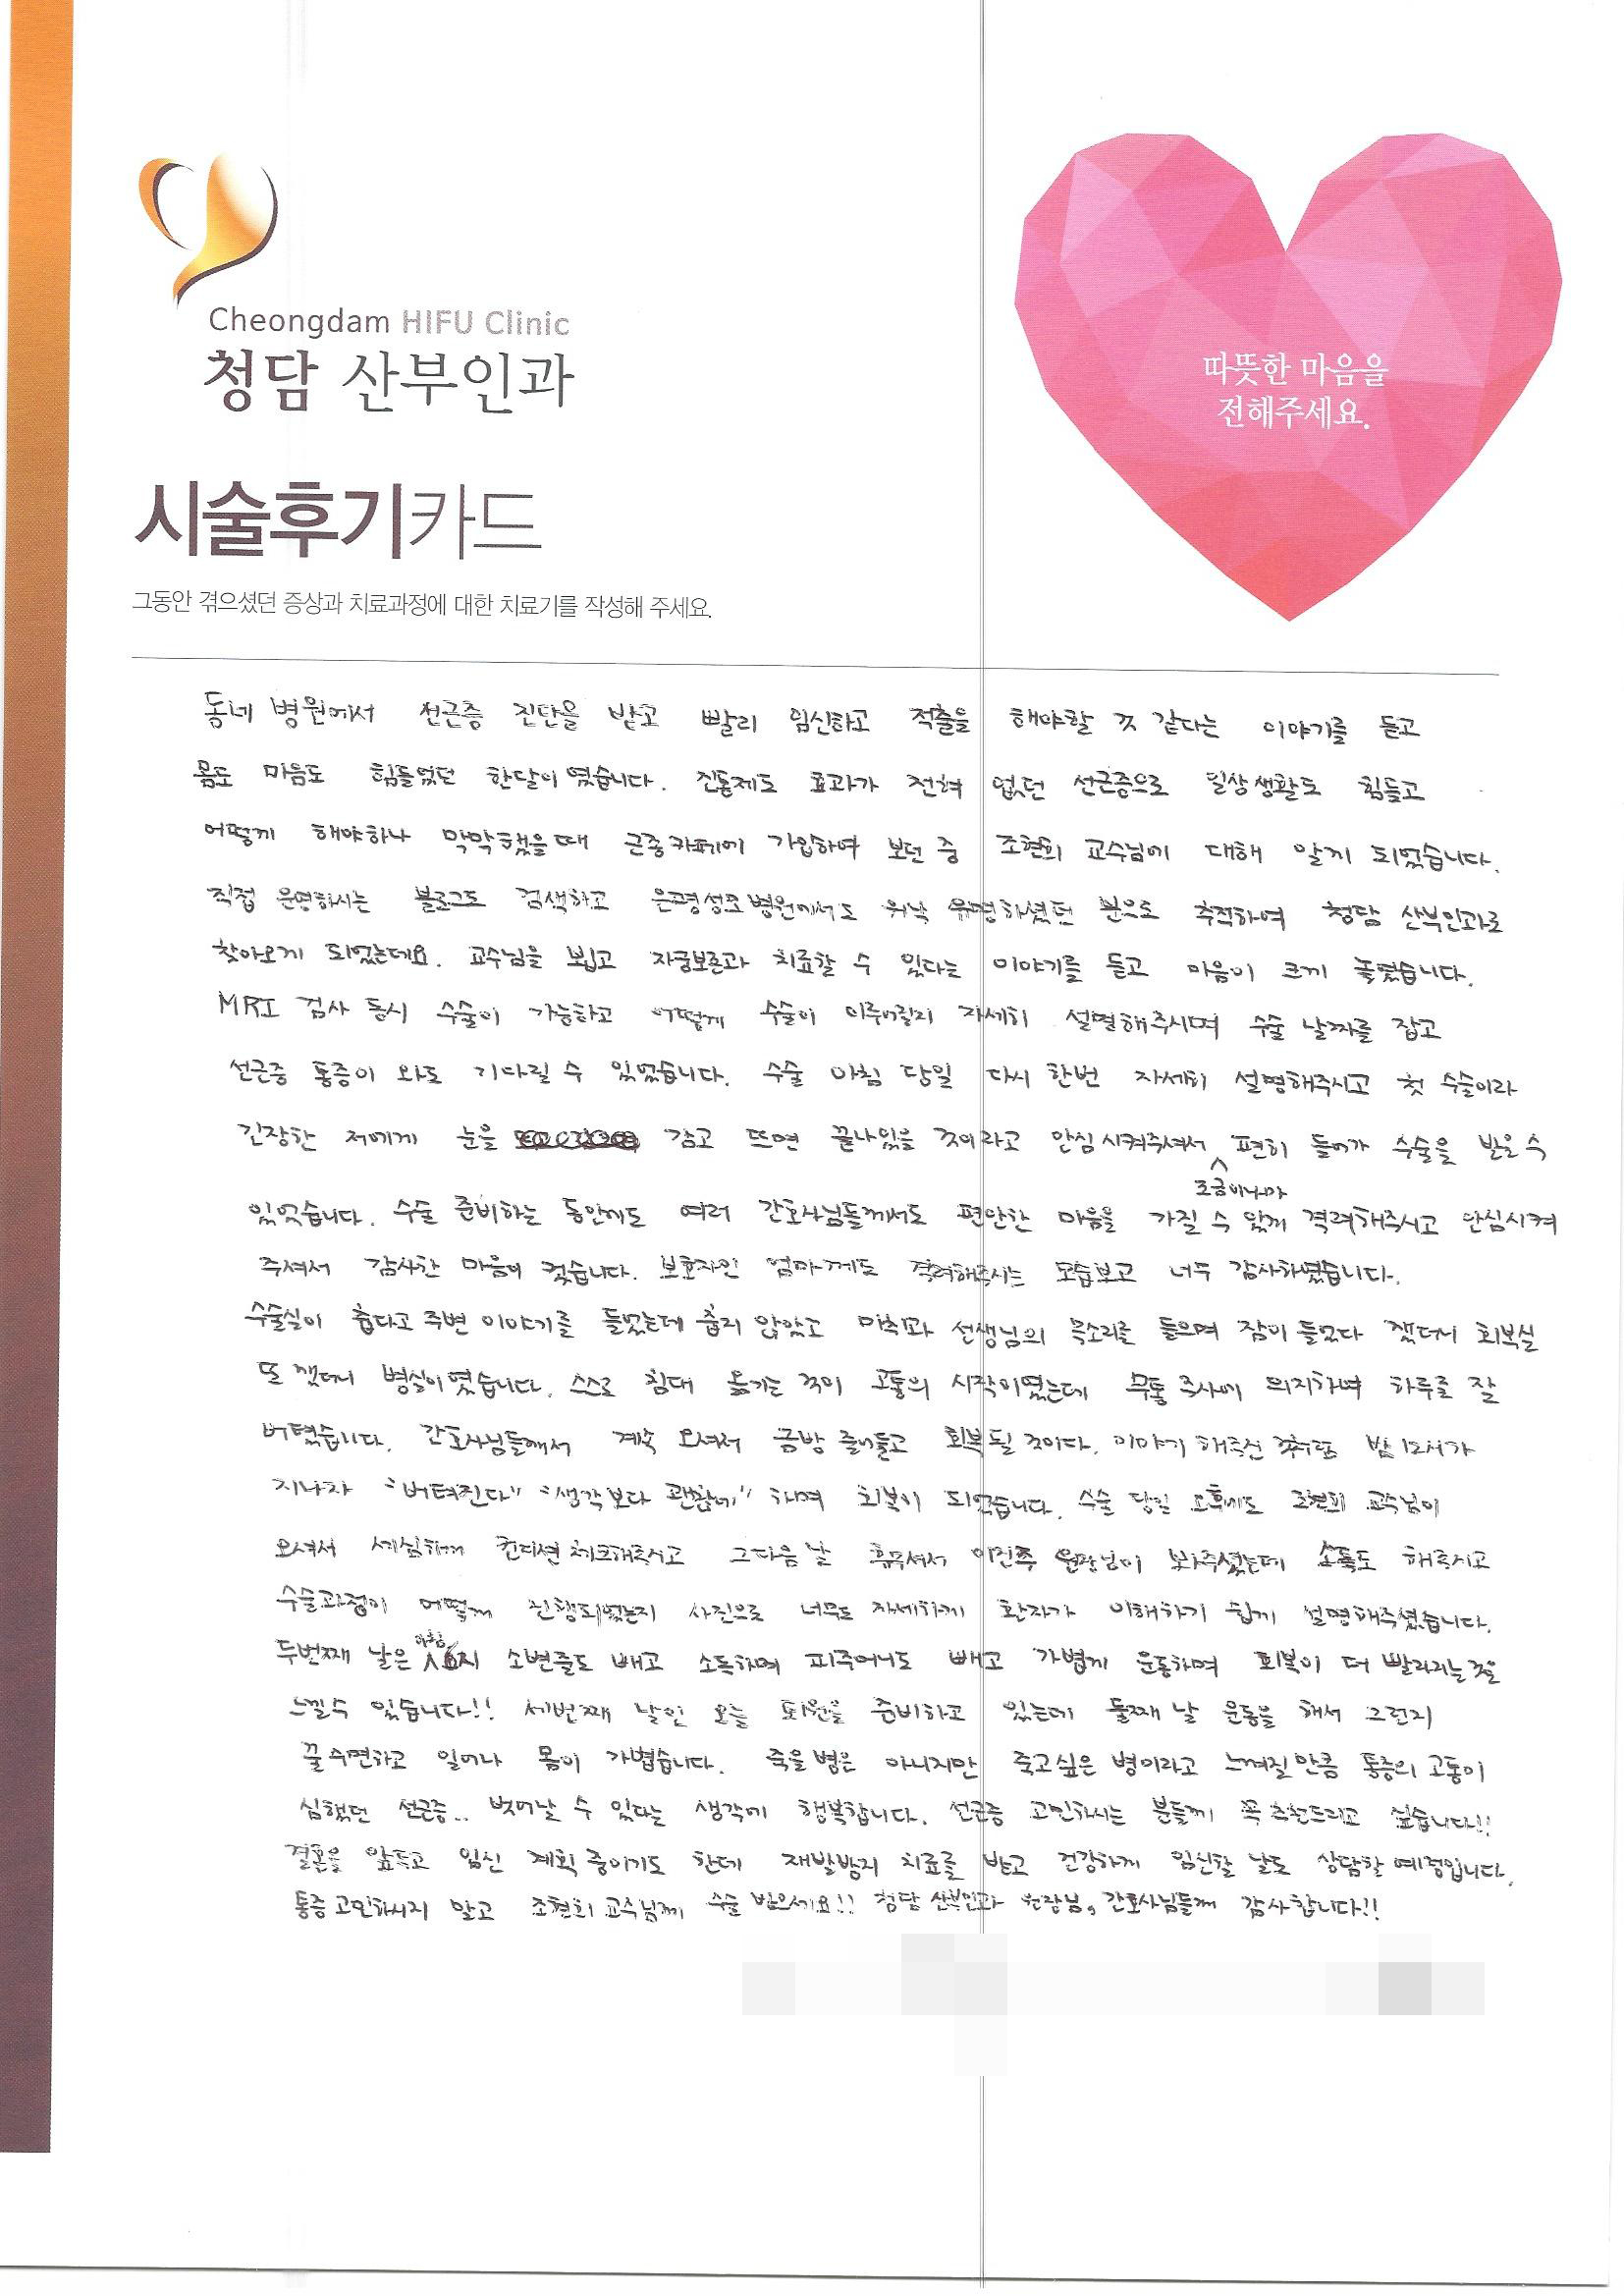 Cheongdam HIFU Clinic
청담 산부인과
따뜻한 마음을
전해주세요.
시술후기카드
그동안 겪으셨던 증상과 치료과정에 대한 치료기를 작성해 주세요.
동네 병원에서 선근증 진단을 받고 빨리 임신하고 적출을 해야할 것 같다는 이야기를 듣고
몸도 마음도 힘들었던 한달이였습니다. 진통제도 효과가 전혀 없던 선근증으로 일상생활도 힘들고
어떻게 해야하나 막막했을때 근종카페에 가입하여 보던 중 조현희 교수님에 대해 알게 되었습니다.
직접 운영하시는 블로그도 검색하고 은평성모병원에서도 워낙 유명하셨던 분으로 추적하여 청담 산부인과로
찾아오게 되었는데요. 교수님을 뵙고 자궁보존과 치료할 수 있다는 이야기를 듣고 마음이 크게 놓였습니다.
MRI 검사 동시 수술이 가능하고 어떻게 수술이 이루어질지 자세히 설명해주시며 수술 날짜를 잡고
선근증 통증이 와도 기다릴 수 있었습니다. 수술 아침 당일 다시 한번 자세히 설명해주시고 첫 수술이라
긴장한 저에게 눈을 감고 뜨면 끝나있을 것이라고 안심시켜주셔서 조금이나마 편히 들어가 수술을 받을수
있었습니다. 수술 준비하는 동안에도 여러 간호사님들께서도 편안한 마음을 가질 수 있게 격려해주시고 안심시켜
주셔서 감사한 마음이 컸습니다. 보호자인 엄마께도 격려해주시는 모습보고 너무 감사하였습니다.
수술실이 춥다고 주변 이야기를 들었는데 춥지 않았고 마취과 선생님의 목소리를 들으며 잠이 들었다 깼더니 회복실
또 깼더니 병실이였습니다. 스스로 침대 옮기는 것이 고통의 시작이였는데 무통 주사에 의지하여 하루를 잘
버텼습니다. 간호사님들께서 계속 오셔서 금방 줄어들고 회복될 것이다. 이야기 해주신 것처럼 밤 12시가
지나자 "버텨진다" "생각보다 괜찮네" 하며 회복이 되었습니다. 수술 당일 오후에도 조현희 교수님이
오셔서 세심하게 컨디션 체크해주시고 그다음날 휴무셔서 이민주 원장님이 봐주셨는데 소독도 해주시고
수술과정이 어떻게 진행되었는지 사진으로 너무도 자세하게 환자가 이해하기 쉽게 설명해주셨습니다.
두번째 날은 아침 6시 소변줄도 빼고 소독하며 피주머니도 빼고 가볍게 운동하며 회복이 더 빨라지는것을
느낄수 있습니다!! 세번째 날인 오늘 퇴원을 준비하고 있는데 둘째 날 운동을 해서 그런지
꿀수면하고 일어나 몸이 가볍습니다. 죽을병은 아니지만 죽고싶은 병이라고 느껴질만큼 통증의 고통이
심했던 선근증.. 벗어날 수 있다는 생각에 행복합니다. 선근증 고민하시는 분들께 꼭 추천드리고 싶습니다!!
결혼을 앞두고 임신 계획 중이기도 한데 재발방지 치료를 받고 건강하게 임신할 날도 상담할 예정입니다.
통증 고민하시지 말고 조현희 교수님께 수술 받으세요!! 청담 산부인과 원장님, 간호사님들께 감사합니다!!